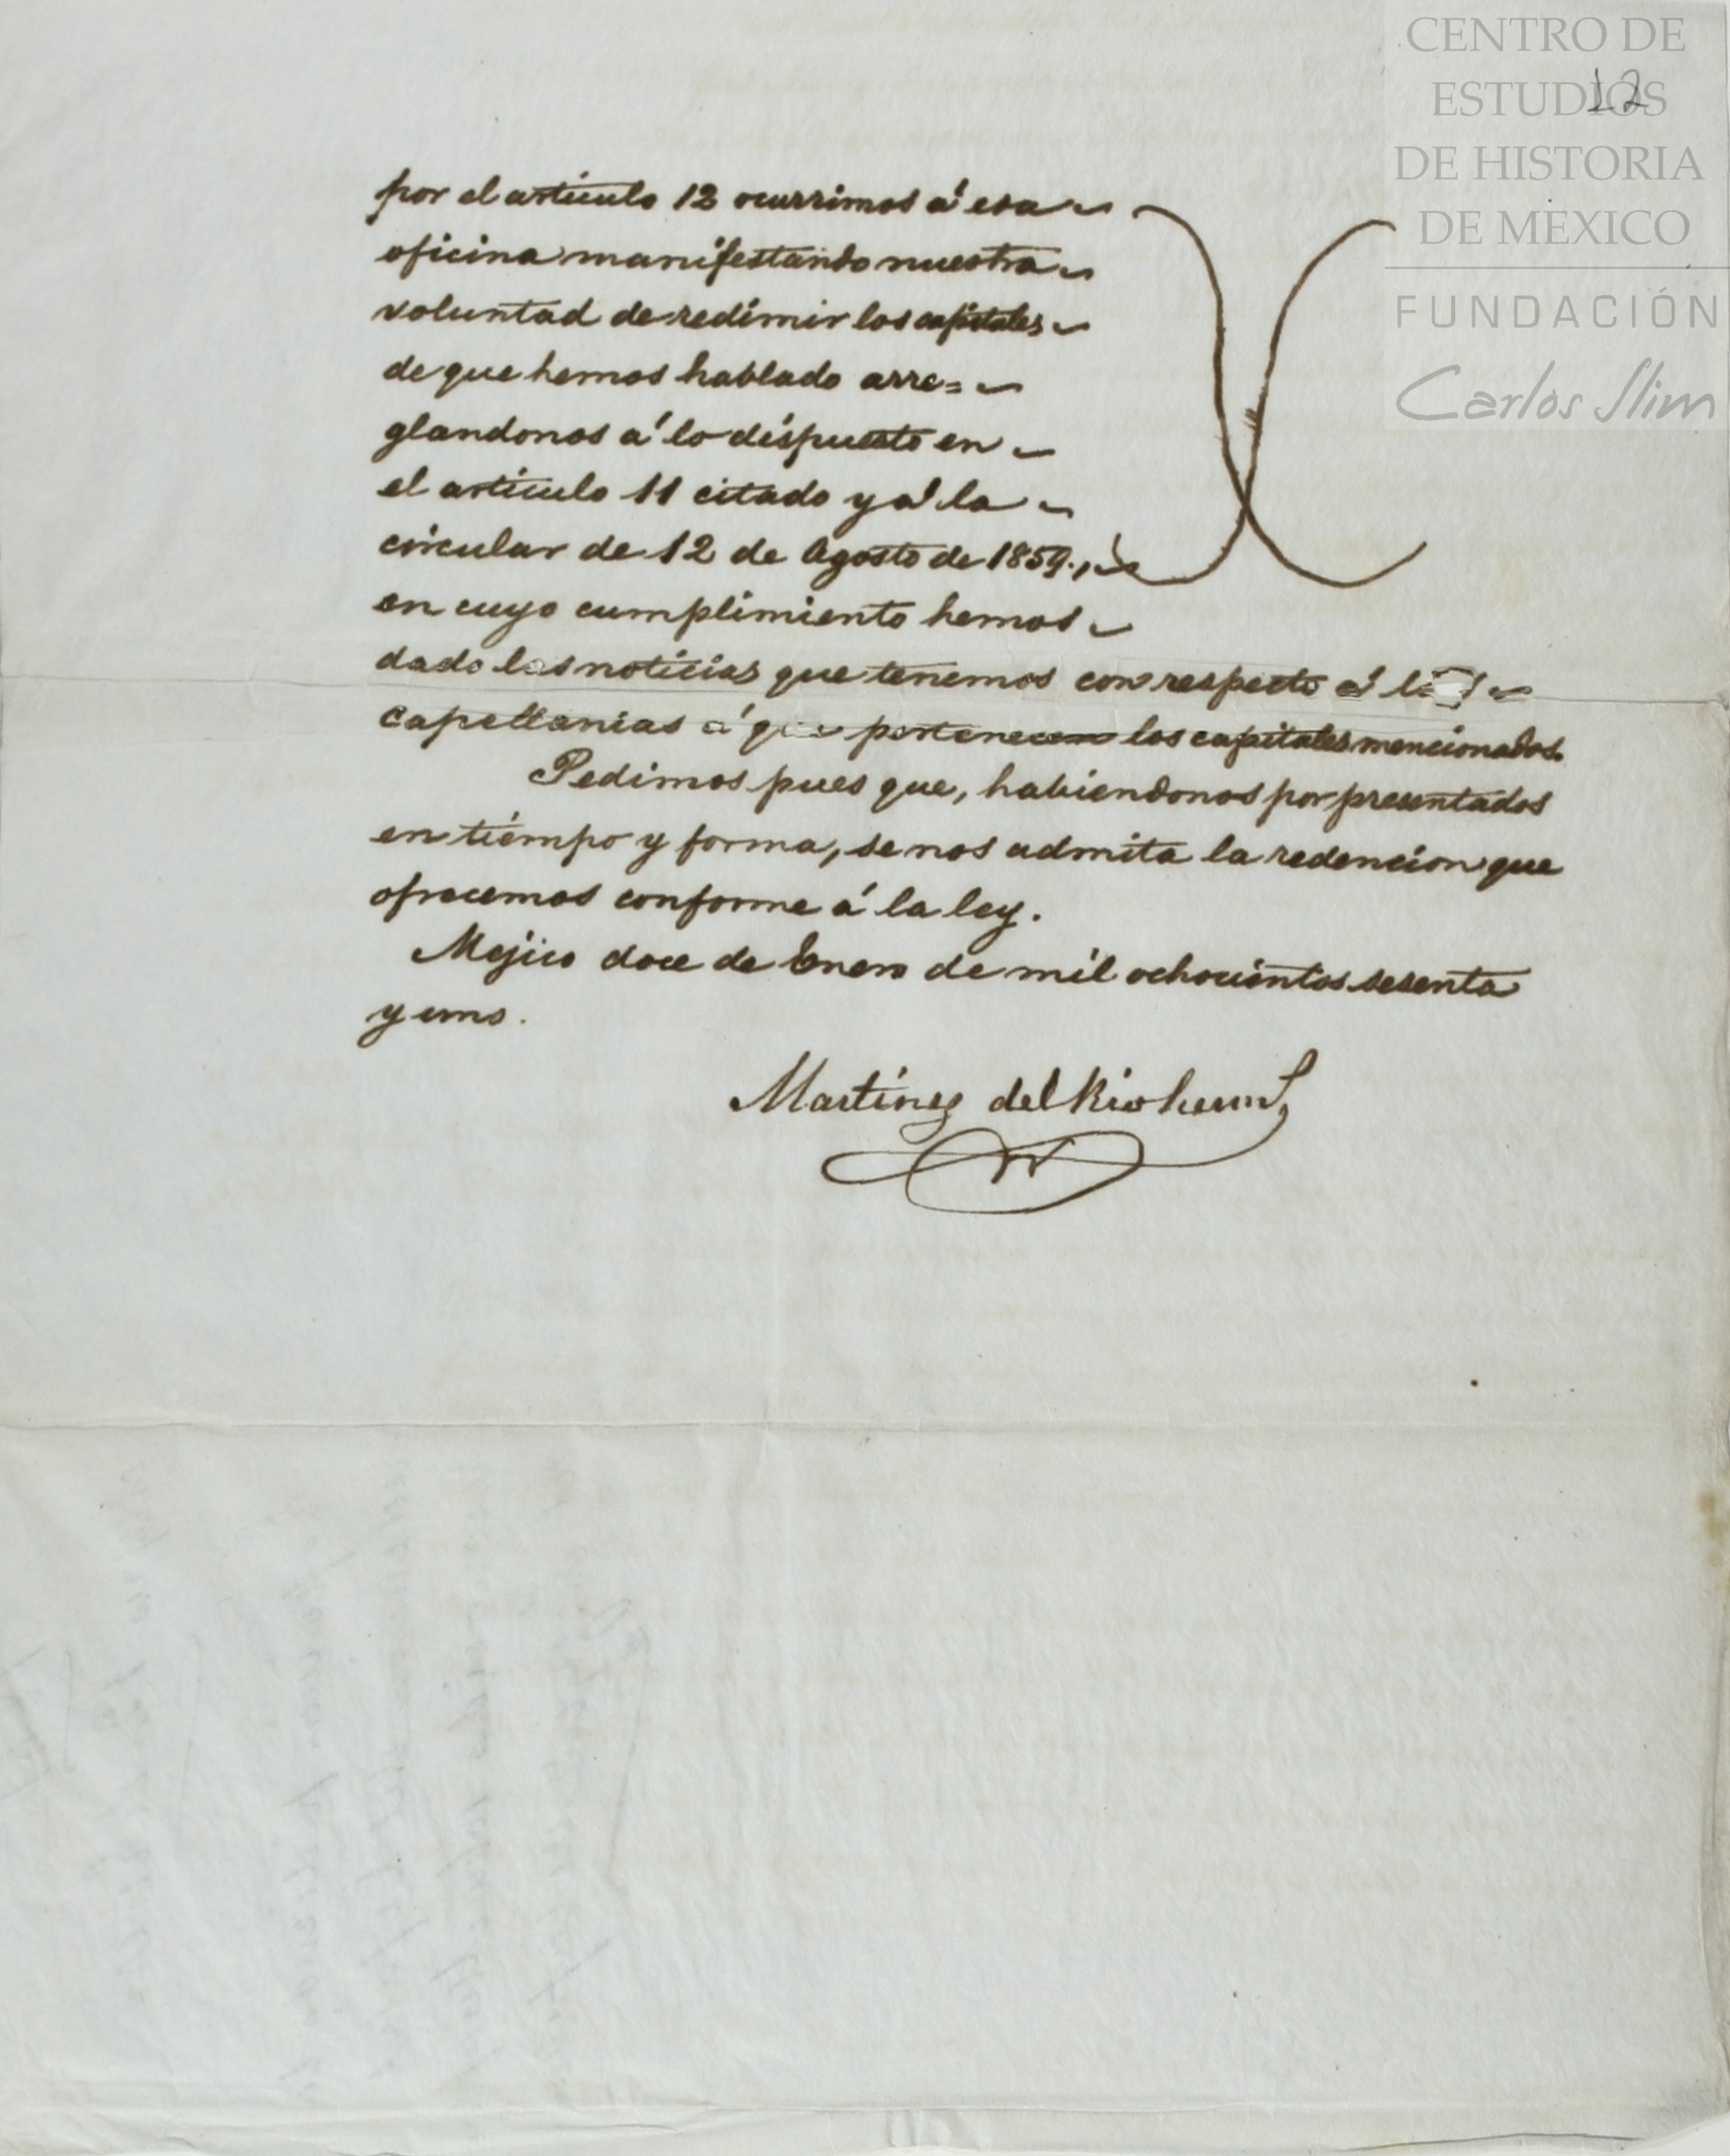 CENTRO DE
ESTUDIOS
DE HISTORIA
DE MÉXICO
FUNDACIÓN
Carlos Slim
12
por el artículo 12 ocurrimos á esa
oficina manifestando nuestra
voluntad de redimir los capitales
de que hemos hablado arre=
glandonos á lo dispuesto en
el artículo 11 citado y á la
circular de 12 de Agosto de 1859.,
en cuyo cumplimiento hemos
dado las noticias que tenemos con respecto á las
capellanias á que pertenecen los capitales mencionados.
Pedimos pues que, habiendonos por presentados
en tiempo y forma, se nos admita la redencion que
ofrecemos conforme á la ley.
Mejico doce de Enero de mil ochocientos sesenta
y uno.
Martinez del Rio herm.s